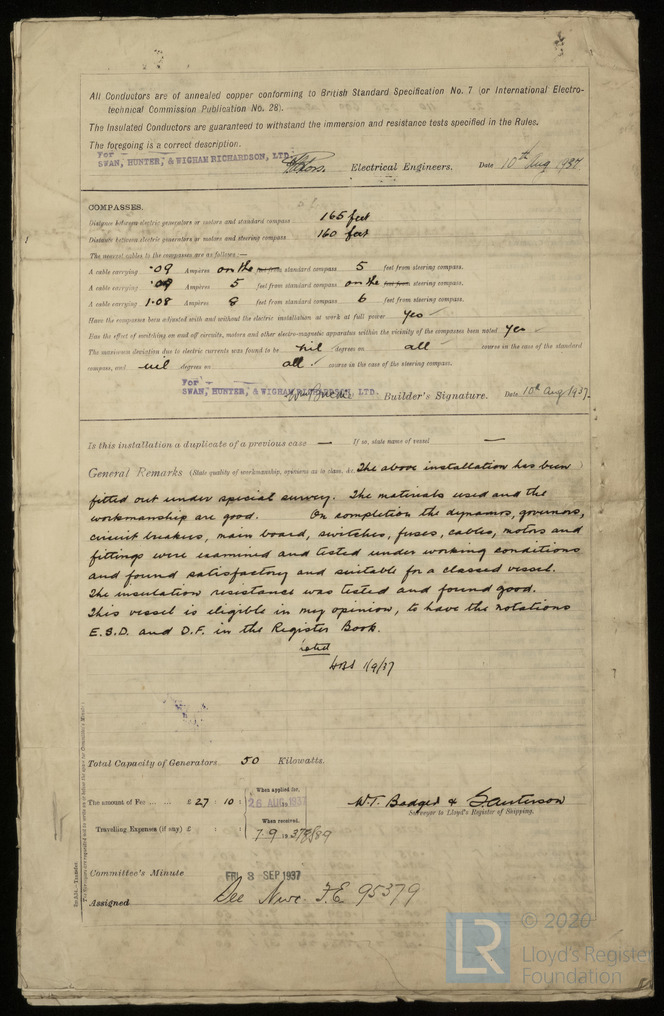 All Conductors are of annealed copper conforming to British Standard Specification No. 7 (or International Electro-
technical Commission Publication No. 28).
The Insulated Conductors are guaranteed to withstand the immersion and resistance tests specified in the Rules.
The foregoing is a correct description.
For
SWAN, HUNTER, & WIGHAM RICHARDSON, LTD. Electrical Engineers. Date 10th Aug 1937
COMPASSES.
Distance between electric generators or motors and standard compass 165 feet
Distance between electric generators or motors and steering compass 160 feet
The nearest cables to the compasses are as follows:—
A cable carrying .09 Ampères on the standard compass 5 feet from steering compass.
A cable carrying .09 Ampères 5 feet from standard compass on the steering compass.
A cable carrying 1.08 Ampères 8 feet from standard compass 6 feet from steering compass.
Have the compasses been adjusted with and without the electric installation at work at full power yes
Has the effect of switching on and off circuits, motors and other electro-magnetic apparatus within the vicinity of the compasses been noted yes
The maximum deviation due to electric currents was found to be nil degrees on all course in the case of the standard
compass, and nil degrees on all course in the case of the steering compass.
For
SWAN, HUNTER, & WIGHAM RICHARDSON, LTD. Builder's Signature. Date 10th Aug 1937.
Is this installation a duplicate of a previous case — If so, state name of vessel —
General Remarks (State quality of workmanship, opinions as to class, &c. The above installation has been
fitted out under special survey. The materials used and the
workmanship are good. On completion the dynamos, governors,
circuit breakers, main board, switches, fuses, cables, motors and
fittings were examined and tested under working conditions
and found satisfactory and suitable for a classed vessel.
The insulation resistance was tested and found good.
This vessel is eligible in my opinion, to have the notations
E.S.D. and D.F. in the Register Book.
noted
1/9/37
Total Capacity of Generators 50 Kilowatts.
The amount of Fee ... ... £ 27 : 10 : When applied for, 26 AUG. 1937
W.T. Badged & Surveyor to Lloyd's Register of Shipping.
Travelling Expenses (if any) £ : : When received, 7.9.1937
Committee's Minute FRI. 3 SEP 1937
Assigned See Nwc F.E. 95379
© 2020
LR Lloyd's Register
Foundation